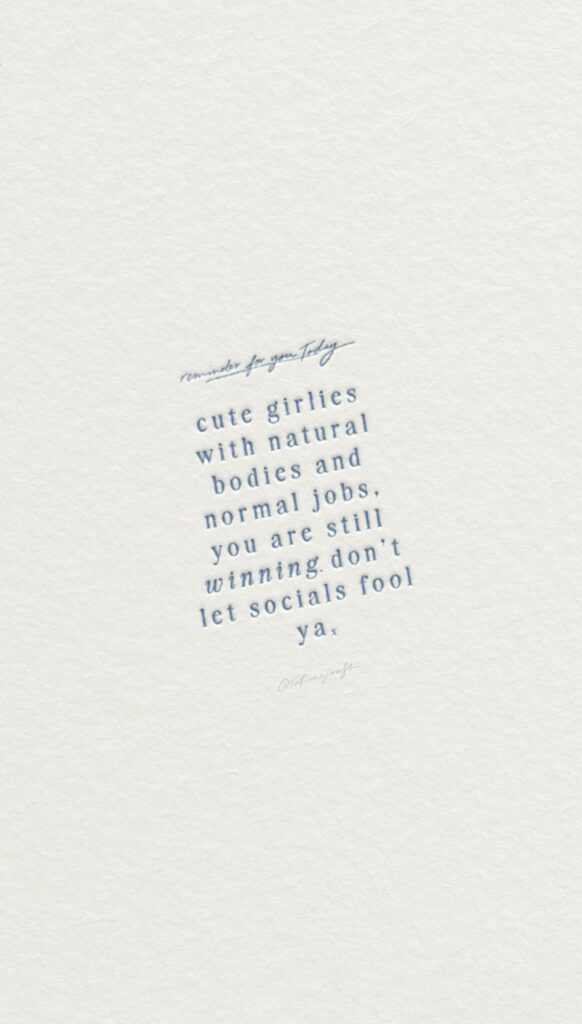 reminder for you Today
cute girlies
with natural
bodies and
normal jobs,
you are still
winning. don't
let socials fool
ya.x